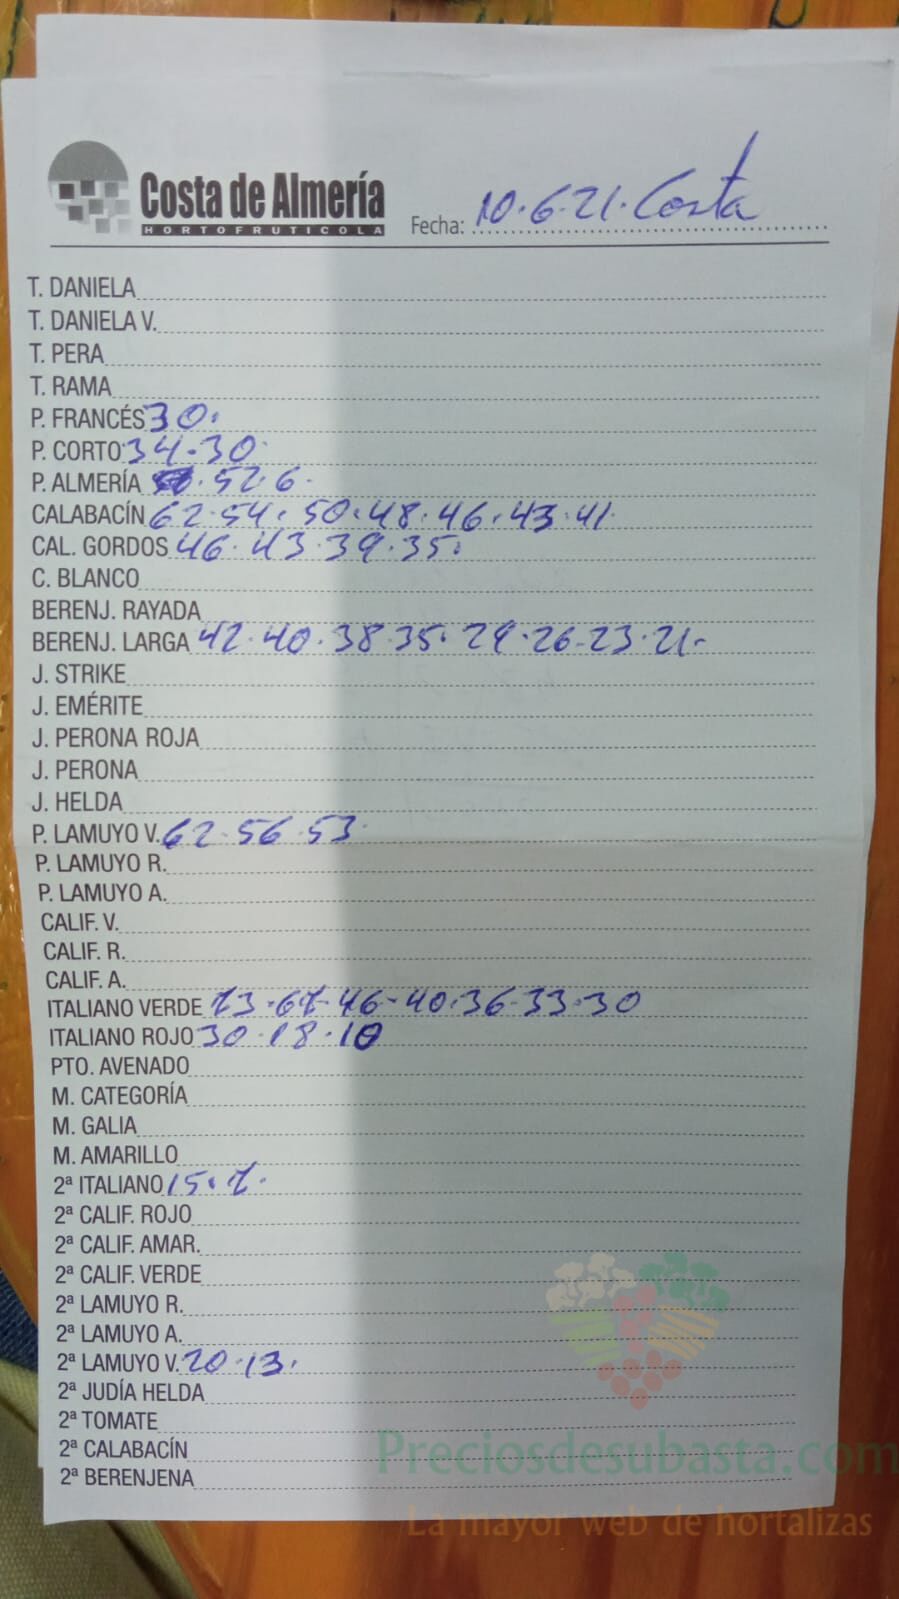 Costa de Almería
HORTOFRUTICOLA
Fecha: 10.6.21. Costa
T. DANIELA
T. DANIELA V.
T. PERA
T. RAMA
P. FRANCÉS 30.
P. CORTO 34.30.
P. ALMERÍA . 52.6.
CALABACÍN 62.54. 50.48.46.43.41.
CAL. GORDOS 46.43.39.35.
C. BLANCO
BERENJ. RAYADA
BERENJ. LARGA 42.40.38.35.29.26-23.21-
J. STRIKE
J. EMÉRITE
J. PERONA ROJA
J. PERONA
J. HELDA
P. LAMUYO V. 62.56.53.
P. LAMUYO R.
P. LAMUYO A.
CALIF. V.
CALIF. R.
CALIF. A.
ITALIANO VERDE 73.67-46-40.36-33.30
ITALIANO ROJO 30.18.10
PTO. AVENADO
M. CATEGORÍA
M. GALIA
M. AMARILLO
2ª ITALIANO 15.7.
2ª CALIF. ROJO
2ª CALIF. AMAR.
2ª CALIF. VERDE
2ª LAMUYO R.
2ª LAMUYO A.
2ª LAMUYO V. 20.13.
2ª JUDÍA HELDA
2ª TOMATE
2ª CALABACÍN
2ª BERENJENA
Preciosdesubasta.com
La mayor web de hortalizas